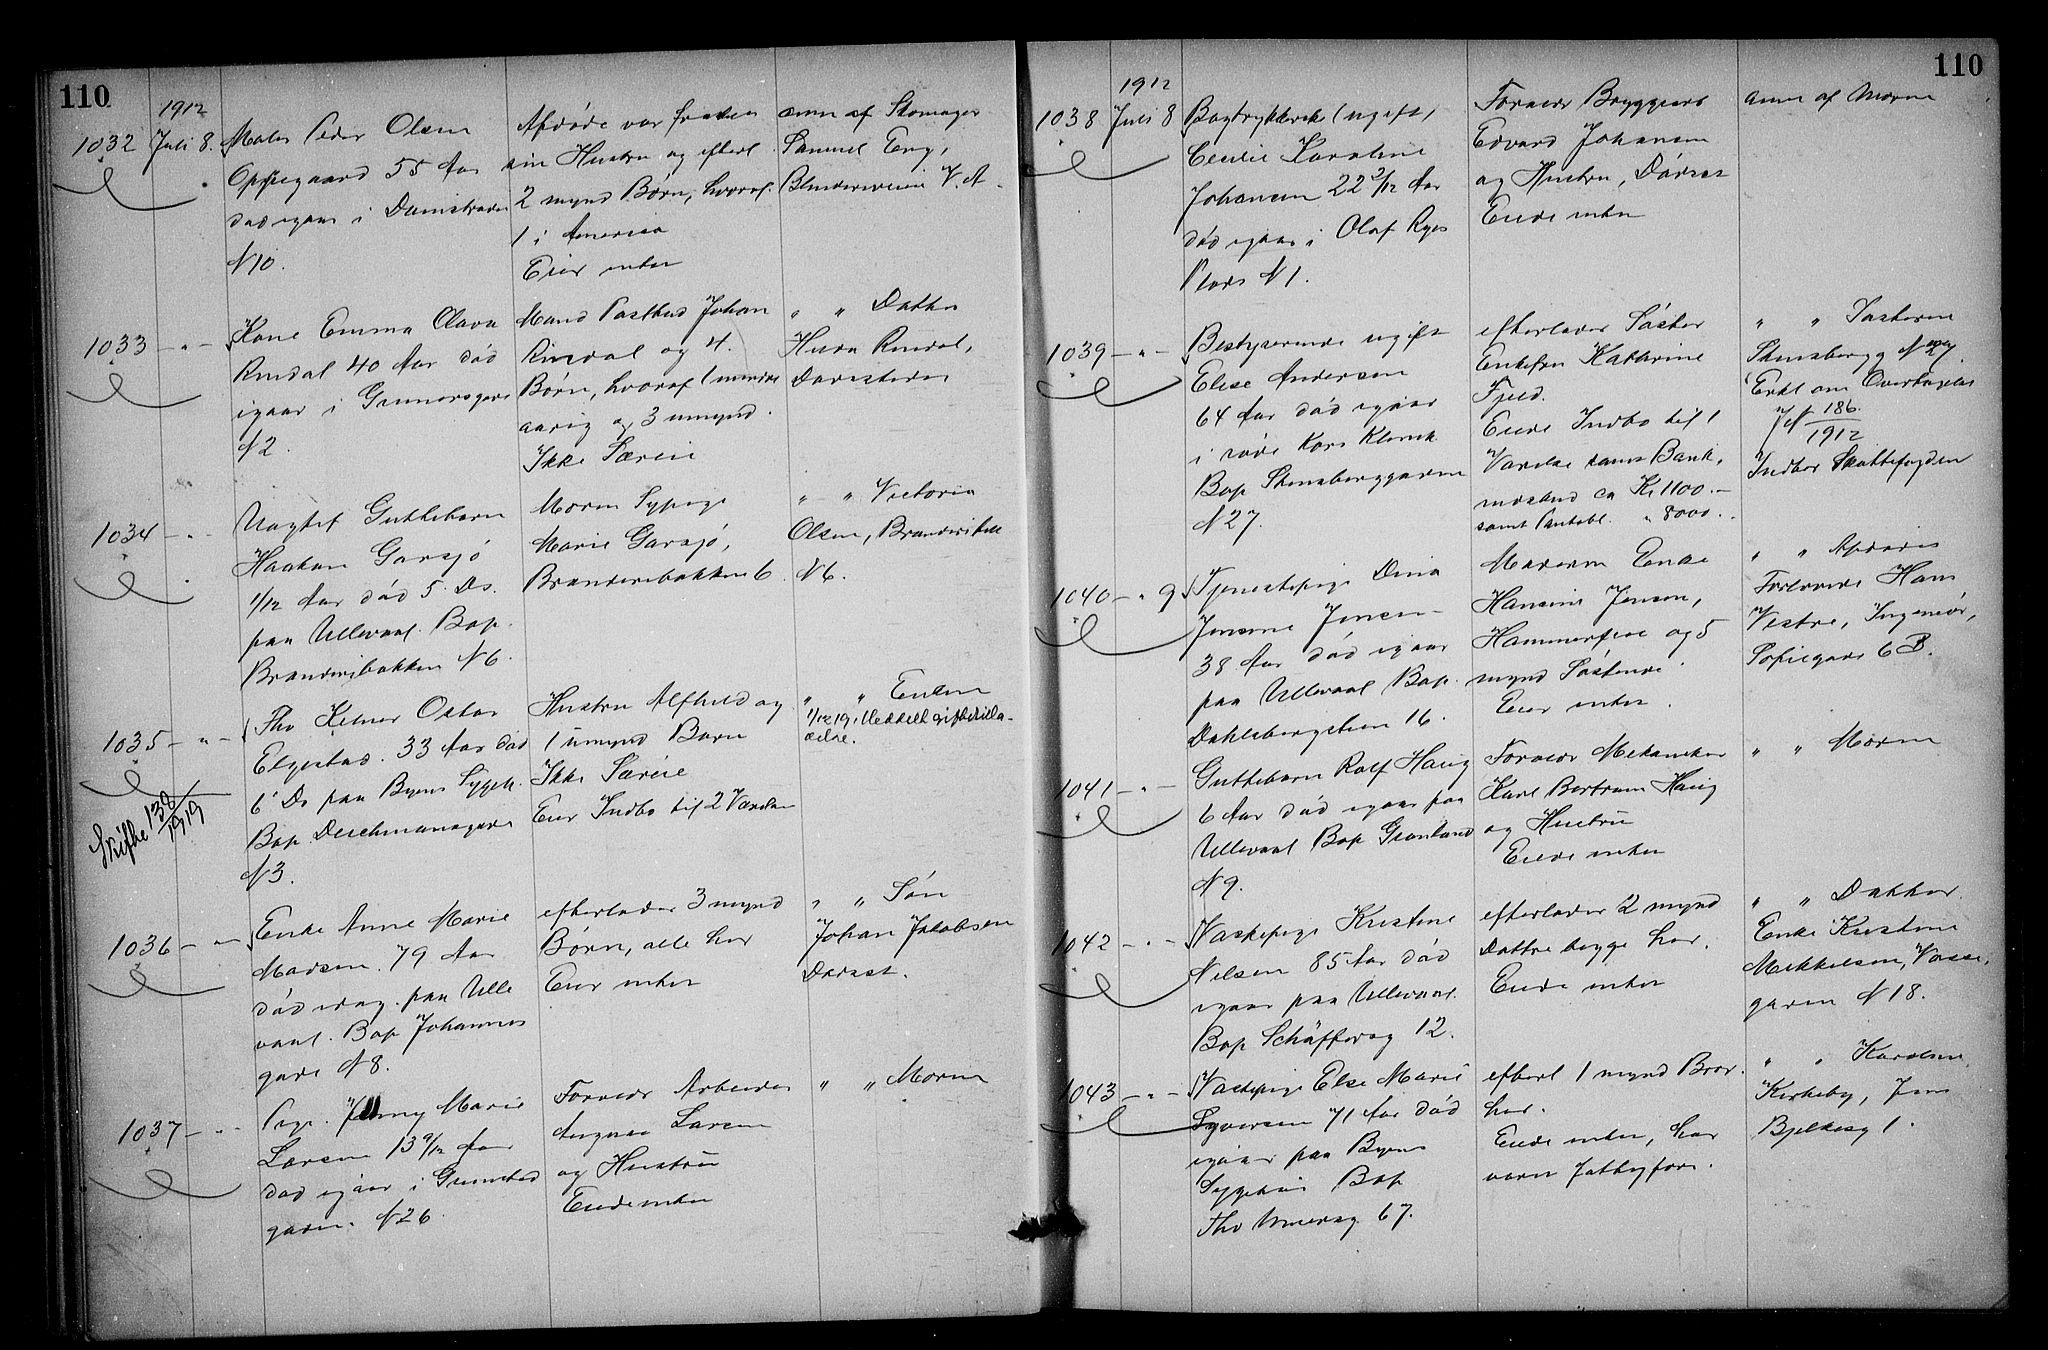 110
1912
1032 Juli 8. Maler Peder Olsen
Oppegaard 55 Aar
død igaar i Damstredet
N 10.
Afdøde var fraskilt
sin Hustru og efterl.
2 mynd Børn, hvoraf
1 i Amerika
Eier intet
anm af Skomager
Samuel Eng,
V. A.
1033 - " - Kone Emma Olava
Rindal 40 Aar død
igaar i Gunnersgade
N 2.
Mand Postbud Johan
Rindal og 4
Børn, hvoraf 1 mindre
aarig og 3 umynd.
Ikke Særeie
" " Datter
Hilda Rindal,
Dørstedet
1034 - " - Uægtef Guttebarn
Haakon Garsjø
1/12 Aar død 5 Ds.
paa Ullevaal. Bop.
Brænneribakken N 6.
Moren Sypige
Marie Garsjø,
Brænneribakken 6
" " Victoria
Olsen,
N 6.
1035 - " - Elgestad. 33 Aar død
6 Ds paa Byens Sygeh.
Bop Deichmansgade
N 3.
Hustru Alfhild og
1 umynd Barn
Ikke Særeie
Eier Indbo til 2 Værelser
" " Enken
1/12 19. Meddelt giftetilla-
delse.
Skifte 138/1919
1036 - " - Enke Anne Marie
Madsen. 79 Aar
død idag paa Ulle
vaal. Bop Johannes
gade N 8.
efterlader 3 mynd
Børn, alle her
Eier intet
" " Søn
Johan Jakobsen
Dørsst.
1037 - " - Pige. Jenny Marie
Larsen 13 9/12 Aar
død igaar i Grimstad
gaden. N 26
Forældr Arbeider
August Larsen
og Hustru
Eiede intet
" " Moren
110
1912
1038 Juli 8 Bogtrykkerske (ugift)
Cecilie Karoline
Johansen 22 3/12 Aar
død igaar i Olaf Ryes
Plads N 1.
Forældr Bryggearb
Edvard Johansen
og Hustru, Dørsst
Eiede intet
anm af Moren
1039 - " - Bestyrerinde ugift
Elise Andersen
64 Aar død igaar
i røde Kors Klinik
Bop Stensberggaden
N 27.
efterlader Søster
Enkefru Kathrine
Fjeld.
Eiede Indbo til 1
Værelse samt Bank-
indskud ca Kr 1100.-
samt Pantobl. " 8000.-
" " Søsteren
Stensbergg N 27
Erkl om Overtagelse
J N 186/1912
Indber Skattefogden
1040 - " 9 Tjenestepige Dina
Jensine Jensen
38 Aar død igaar
paa Ullevaal Bop.
Dahlsbergstien 16.
Moderen Enke
Hansine Jensen,
Hammerfest og 5
mynd Søskende.
Eier intet.
" " Afdødes
Forlovede Hans
Vestre, Ingeniør,
Sofiegade 6 B.
1041 - " - Guttebarn Rolf Haug
6 Aar død igaar paa
Ullevaal Bop Grønland
N 9.
Forældr Mekaniker
Karl Bertram Haug
og Hustru
Eiede intet
" " Moren
1042 - " - Vaskepige Kristine
Nilsen 85 Aar død
igaar paa Ullevaal.
Bop Schäffersg 12.
efterlader 2 mynd
Døttre begge her.
Eiede intet
" " Datter
Enke Kristine
Mikkelsen, Vosse-
gaden N 18.
1043 - " - Vaskepige Else Marie
Syversen 71 Aar død
igaar paa Byens
Sygehus Bop
Thv Meyersg 67.
efterl 1 mynd Bror
her.
Eiede intet, har
været fattigfors.
" " Karoline
Kirkeby, Jens
Bjelkesg 1.